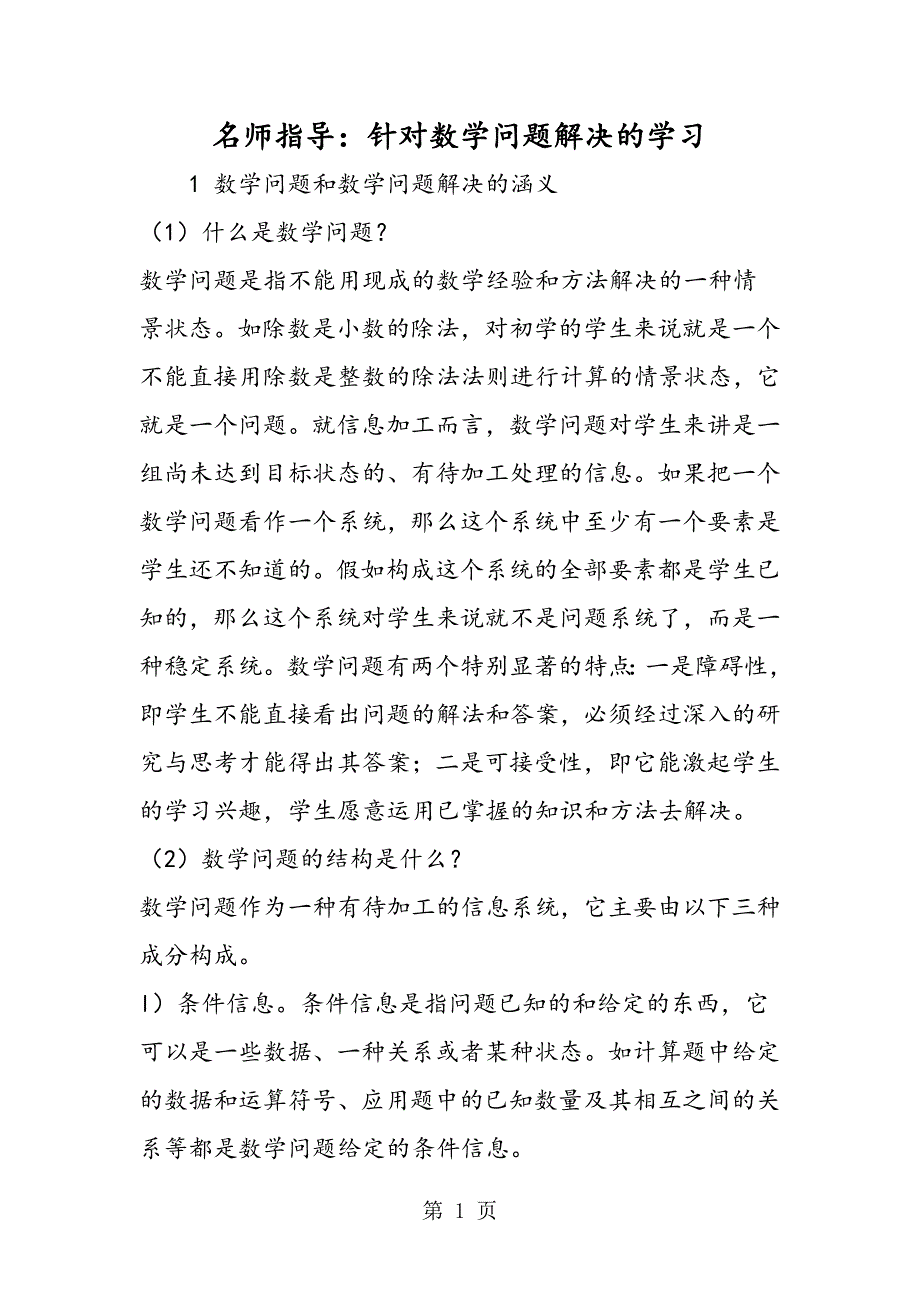 名师指导：针对数学问题解决的学习
1 数学问题和数学问题解决的涵义
（1）什么是数学问题？
数学问题是指不能用现成的数学经验和方法解决的一种情
景状态。如除数是小数的除法，对初学的学生来说就是一个
不能直接用除数是整数的除法法则进行计算的情景状态，它
就是一个问题。就信息加工而言，数学问题对学生来讲是一
组尚未达到目标状态的、有待加工处理的信息。如果把一个
数学问题看作一个系统，那么这个系统中至少有一个要素是
学生还不知道的。假如构成这个系统的全部要素都是学生已
知的，那么这个系统对学生来说就不是问题系统了，而是一
种稳定系统。数学问题有两个特别显著的特点：一是障碍性，
即学生不能直接看出问题的解法和答案，必须经过深入的研
究与思考才能得出其答案；二是可接受性，即它能激起学生
的学习兴趣，学生愿意运用已掌握的知识和方法去解决。
（2）数学问题的结构是什么？
数学问题作为一种有待加工的信息系统，它主要由以下三种
成分构成。
l）条件信息。条件信息是指问题已知的和给定的东西，它
可以是一些数据、一种关系或者某种状态。如计算题中给定
的数据和运算符号、应用题中的已知数量及其相互之间的关
系等都是数学问题给定的条件信息。
第 1 页